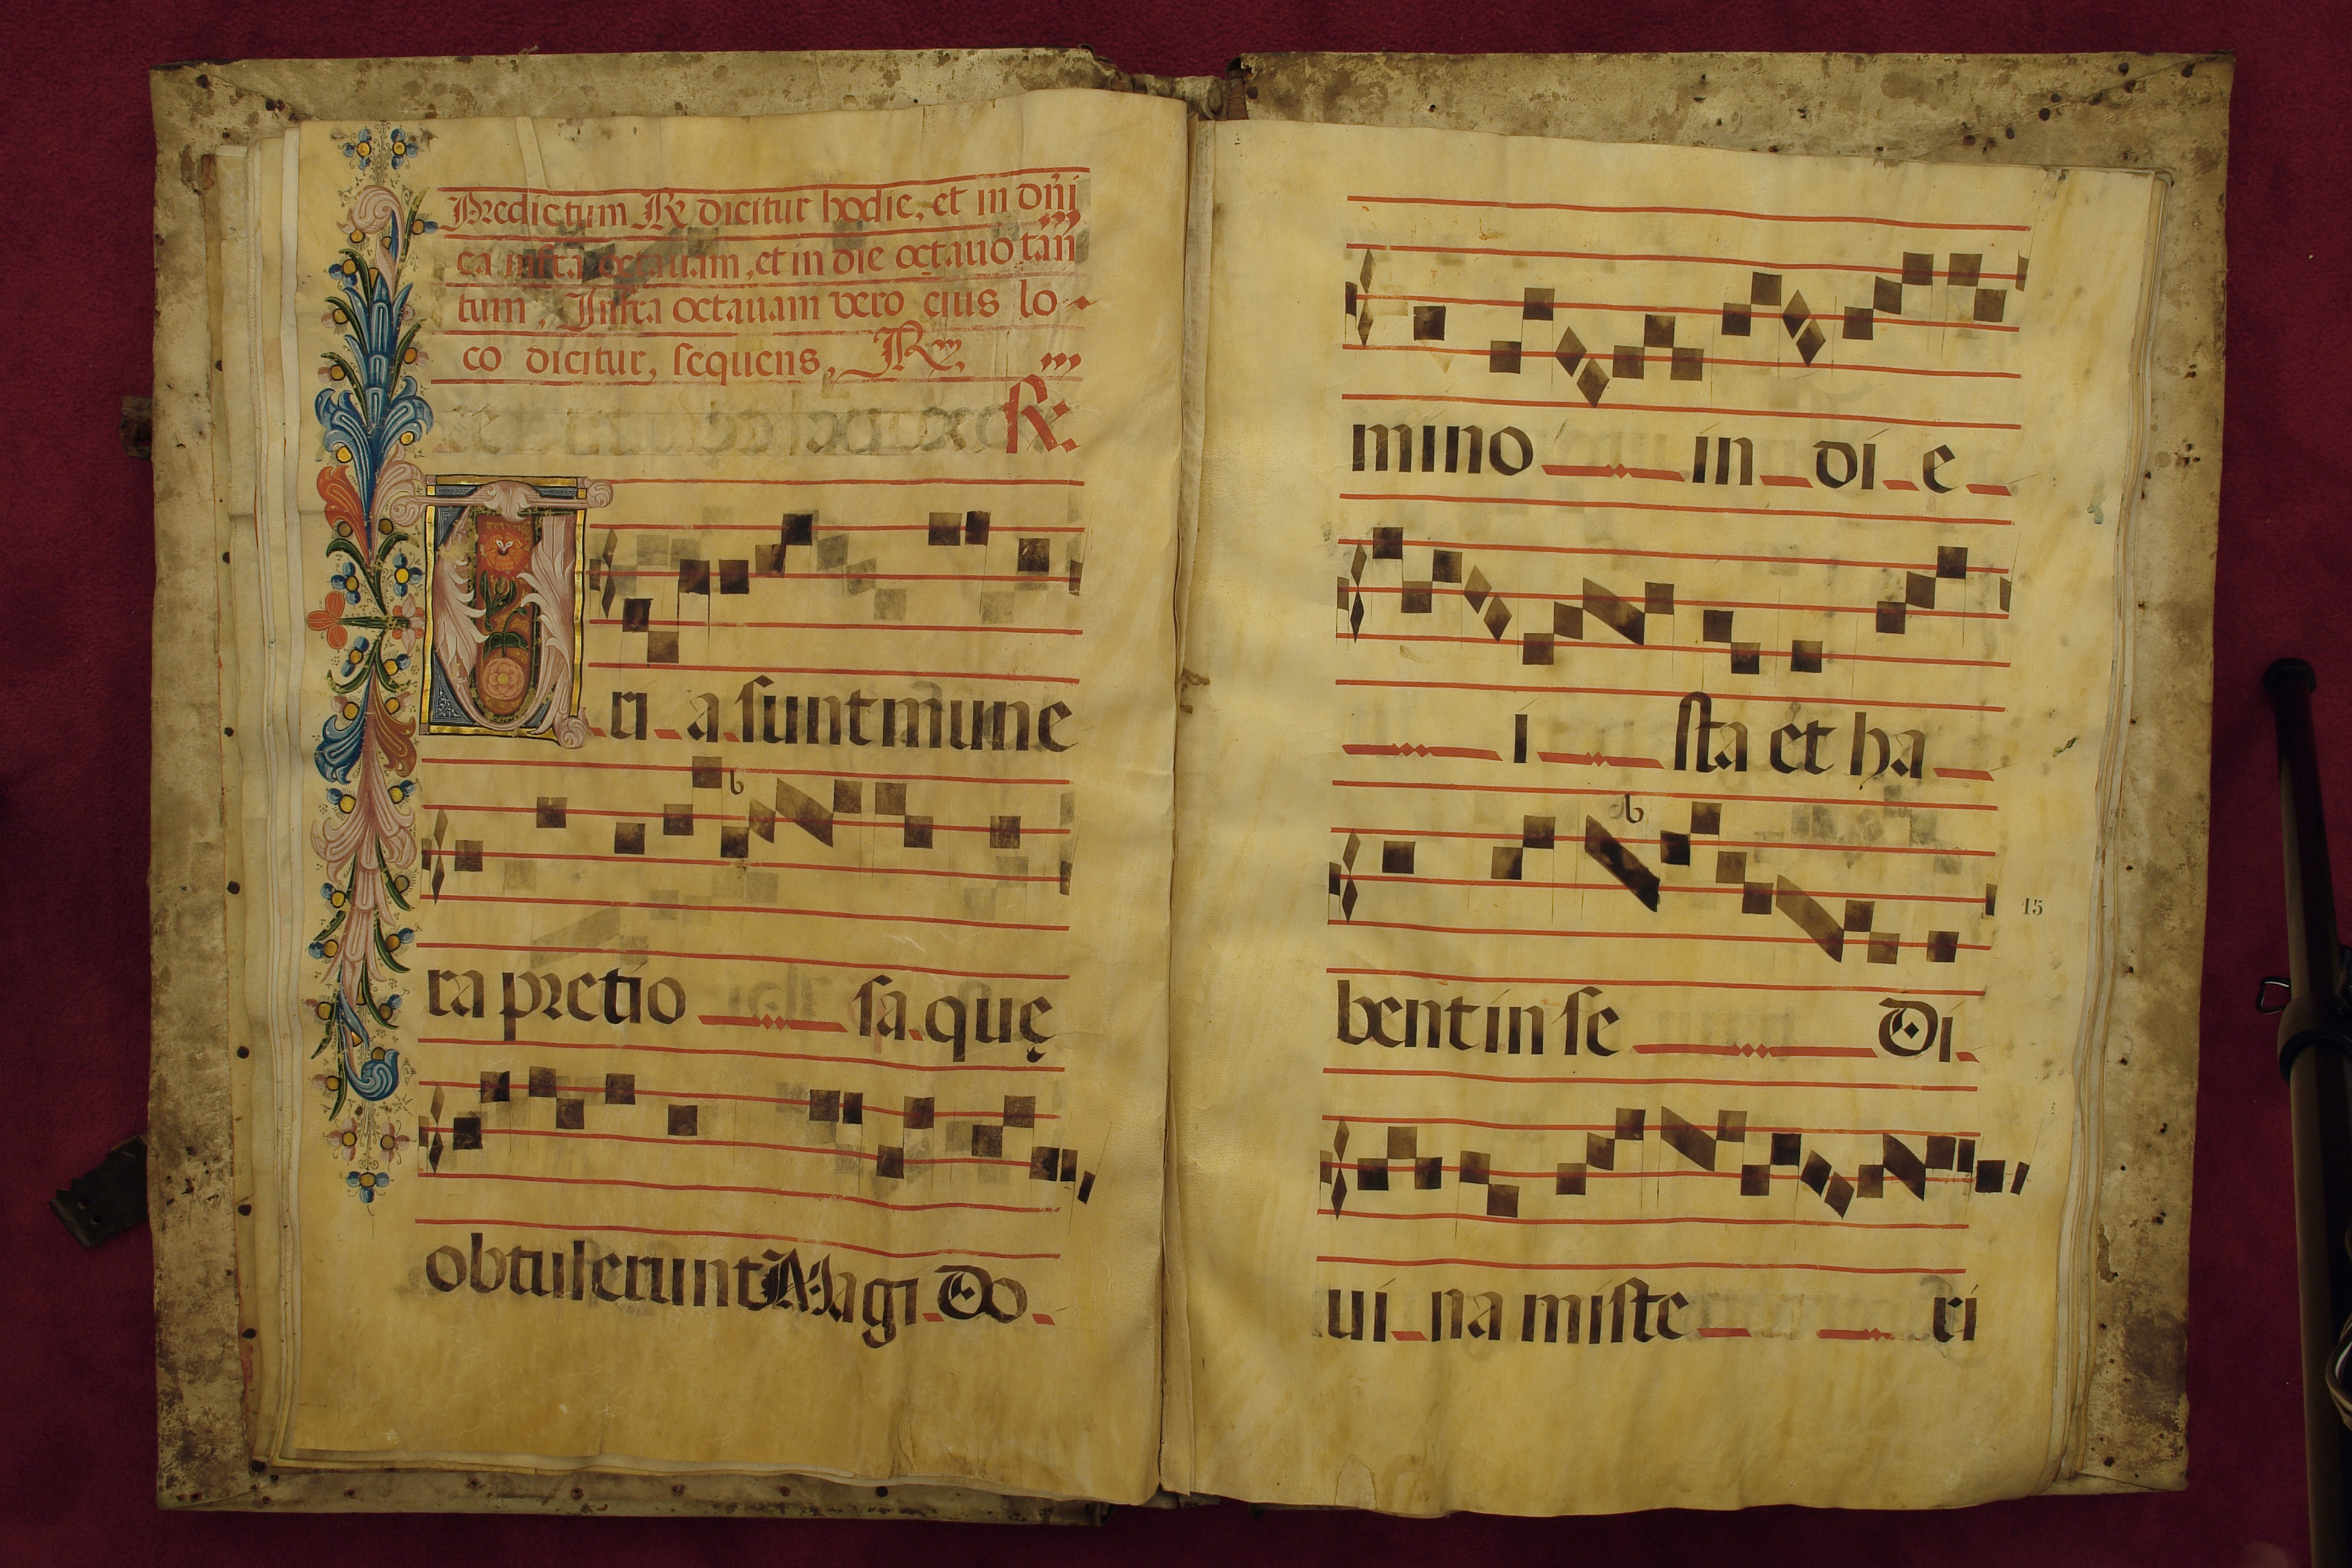 Predictum R dicitur hodie, et in dñi
ca infra octauam, et in die octauo tañ
tum, Infra octauam vero eius lo
co dicitur, sequens, R
R.
Tri a sunt mune
ra pretio sa. quę
obtulerunt Magi Do
mino in di e
i sta et ha
bent in se Di
ui na miste ri
15